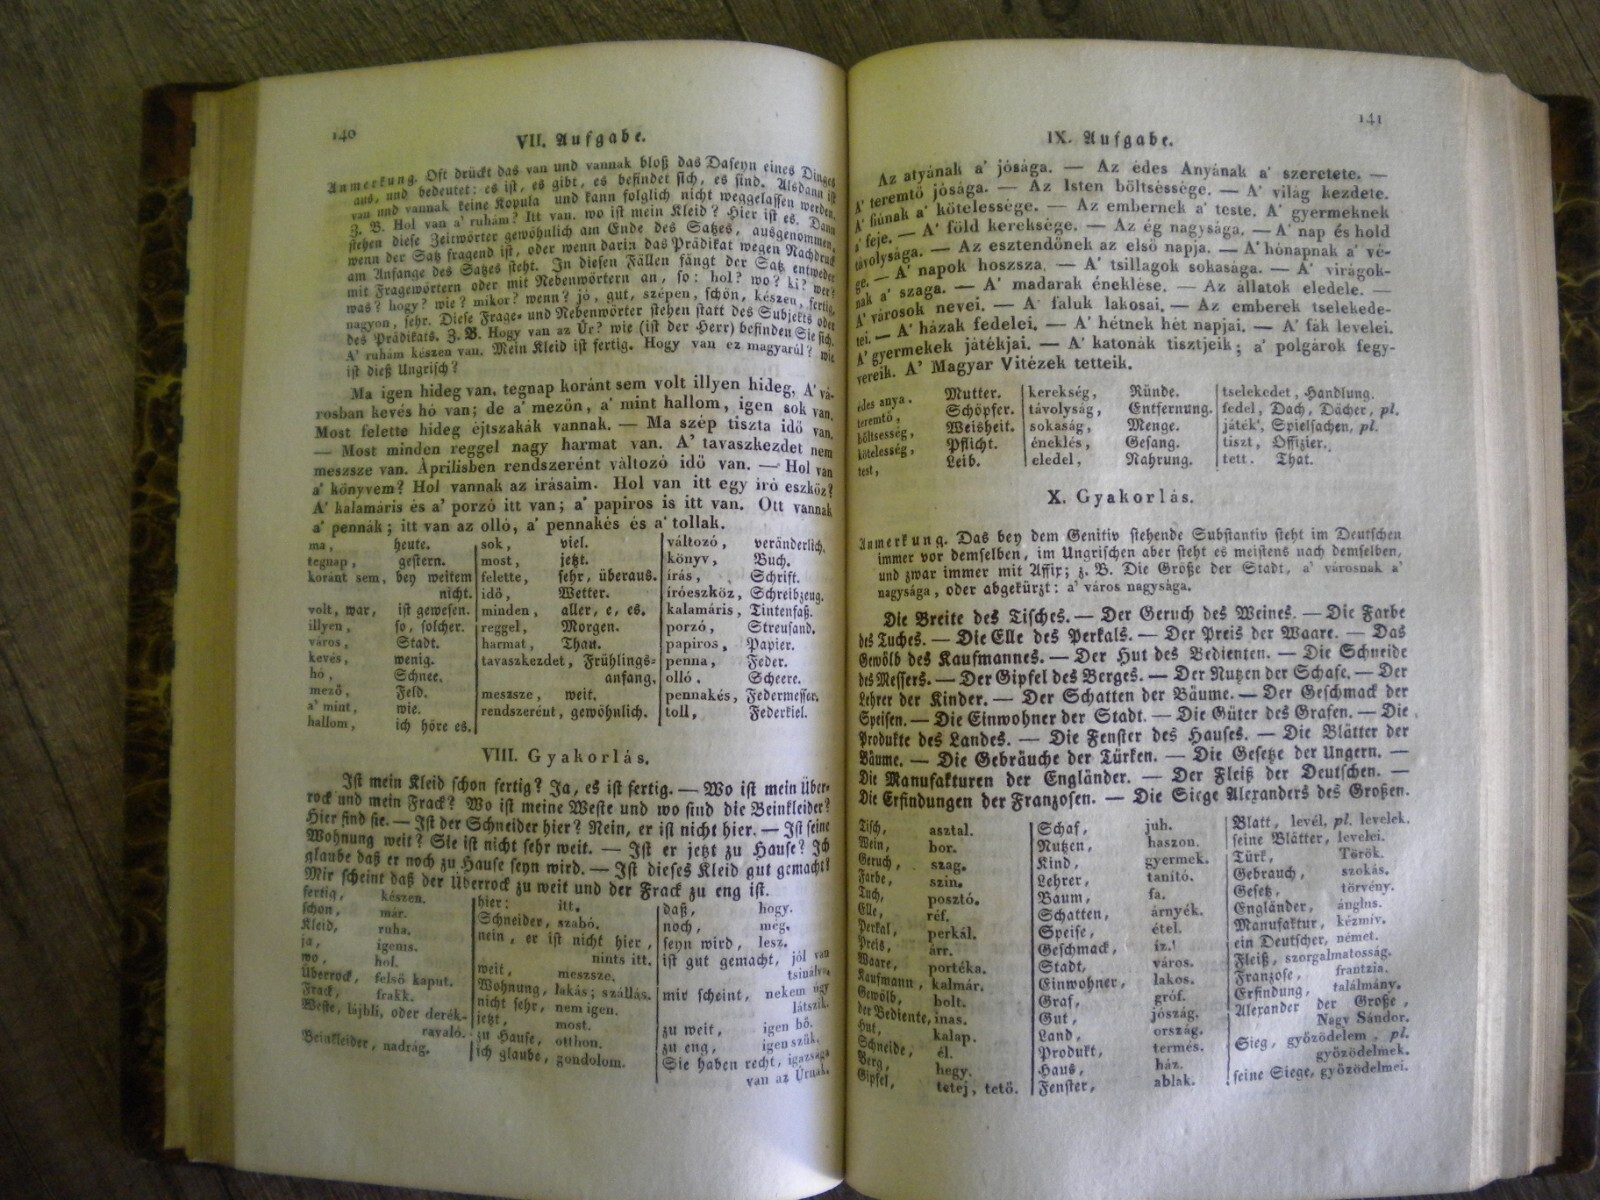 140
VII. Aufgabe.
Anmerkung. Oft drückt das van und vannak bloß das Daseyn eines Dinges
aus, und bedeutet: es ist, es gibt, es befindet sich, es sind. Alsdann ist
van und vannak keine Kopula und kann folglich nicht weggelassen werden.
Z. B. Hol van a' ruhám? Itt van. wo ist mein Kleid? Hier ist es. Dann
stehen diese Zeitwörter gewöhnlich am Ende des Satzes, ausgenommen,
wenn der Satz fragend ist, oder wenn darin das Prädikat wegen Nachdruck
am Anfange des Satzes steht. In diesen Fällen fängt der Satz entweder
mit Fragewörtern oder mit Nebenwörtern an, so: hol? wo? ki? wer?
was? hogy? wie? mikor? wenn? jó, gut, szépen, schön, készen, fertig,
nagyon, sehr. Diese Frage- und Nebenwörter stehen statt des Subjekts oder
des Prädikats. Z. B. Hogy van az Úr? wie (ist der Herr) befinden Sie sich.
A' ruhám készen van. Mein Kleid ist fertig. Hogy van ez magyarúl? wie
ist dieß Ungrisch?
Ma igen hideg van, tegnap koránt sem volt illyen hideg, A' vá-
rosban kevés hó van; de a' mezőn, a' mint hallom, igen sok van.
Most felette hideg éjtszakák vannak. — Ma szép tiszta idő van.
— Most minden reggel nagy harmat van. A' tavaszkezdet nem
meszsze van. Áprilisben rendszerént változó idő van. — Hol van
a' könyvem? Hol vannak az irásaim. Hol van itt egy író eszköz?
A' kalamáris és a' porzó itt van; a' papiros is itt van. Ott vannak
a' pennák; itt van az olló, a' pennakés és a' tollak.
ma, heute.
tegnap, gestern.
koránt sem, bey weitem
nicht.
volt, war, ist gewesen.
illyen, so, solcher.
város, Stadt.
kevés, wenig.
hó, Schnee.
mező, Feld.
a' mint, wie.
hallom, ich höre es.
sok, viel.
most, jetzt.
felette, sehr, überaus.
idő, Wetter.
minden, aller, e, es.
reggel, Morgen.
harmat, Thau.
tavaszkezdet, Frühlings-
anfang.
meszsze, weit.
rendszerént, gewöhnlich.
változó, veränderlich.
könyv, Buch.
írás, Schrift.
íróeszköz, Schreibzeug.
kalamáris, Tintenfaß.
porzó, Streusand.
papiros, Papier.
penna, Feder.
olló, Scheere.
pennakés, Federmesser.
toll, Federkiel.
VIII. Gyakorlás.
Ist mein Kleid schon fertig? Ja, es ist fertig. — Wo ist mein Über-
rock und mein Frack? Wo ist meine Weste und wo sind die Beinkleider?
Hier sind sie. — Ist der Schneider hier? Nein, er ist nicht hier. — Ist seine
Wohnung weit? Sie ist nicht sehr weit. — Ist er jetzt zu Hause? Ich
glaube daß er noch zu Hause seyn wird. — Ist dieses Kleid gut gemacht?
Mir scheint daß der Überrock zu weit und der Frack zu eng ist.
fertig, készen.
schon, már.
Kleid, ruha.
ja, igenis.
wo, hol.
Überrock, felső kaput.
Frack, frakk.
Weste, lájbli, oder derék-
ravaló.
Beinkleider, nadrág.
hier: itt.
Schneider, szabó.
nein, er ist nicht hier,
nints itt.
weit, meszsze.
Wohnung, lakás; szállás.
nicht sehr, nem igen.
jetzt, most.
zu Hause, otthon.
ich glaube, gondolom.
daß, hogy.
noch, még.
seyn wird, lesz.
ist gut gemacht, jól van
tsinálva.
mir scheint, nekem úgy
látszik.
zu weit, igen bő.
zu eng, igen szűk.
Sie haben recht, igazsága
van az Úrnak.
141
IX. Aufgabe.
Az atyának a' jósága. — Az édes Anyának a' szeretete. —
A' teremtő jósága. — Az Isten böltséssége. — A' világ kezdete.
A' fiúnak a' kötelessége. — Az embernek a' teste. A' gyermeknek
a' feje. — A' föld kereksége. — Az ég nagysága. — A' nap és hold
távolysága. — Az esztendőnek az első napja. — A' hónapnak a' vé-
ge. — A' napok hoszsza. — A' tsillagok sokasága. — A' virágok-
nak a' szaga. — A' madarak éneklése. — Az állatok eledele. —
A' városok nevei. — A' faluk lakosai. — Az emberek tselekede-
tei. — A' házak fedelei. — A' hétnek hét napjai. — A' fák levelei.
A' gyermekek játékjai. — A' katonák tisztjeik; a' polgárok fegy-
vereik. A' Magyar Vitézek tetteik.
édes anya. Mutter.
teremtő, Schöpfer.
böltsesség, Weisheit.
kötelesség, Pflicht.
test, Leib.
kerekség, Ründe.
távolyság, Entfernung.
sokaság, Menge.
éneklés, Gesang.
eledel, Nahrung.
tselekedet, Handlung.
fedel, Dach, Dächer, pl.
játék', Spielsachen, pl.
tiszt, Offizier.
tett. That.
X. Gyakorlás.
Anmerkung. Das bey dem Genitiv stehende Substantiv steht im Deutschen
immer vor demselben, im Ungrischen aber steht es meistens nach demselben,
und zwar immer mit Affix; z. B. Die Größe der Stadt, a' városnak a'
nagysága, oder abgekürzt: a' város nagysága.
Die Breite des Tisches. — Der Geruch des Weines. — Die Farbe
des Tuches. — Die Elle des Perkals. — Der Preis der Waare. — Das
Gewölb des Kaufmannes. — Der Hut des Bedienten. — Die Schneide
des Messers. — Der Gipfel des Berges. — Der Nutzen der Schafe. — Der
Lehrer der Kinder. — Der Schatten der Bäume. — Der Geschmack der
Speisen. — Die Einwohner der Stadt. — Die Güter des Grafen. — Die
Produkte des Landes. — Die Fenster des Hauses. — Die Blätter der
Bäume. — Die Gebräuche der Türken. — Die Gesetze der Ungern. —
Die Manufakturen der Engländer. — Der Fleiß der Deutschen. —
Die Erfindungen der Franzosen. — Die Siege Alexanders des Großen.
Tisch, asztal.
Wein, bor.
Geruch, szag.
Farbe, szín.
Tuch, posztó.
Elle, réf.
Perkal, perkál.
Preis, árr.
Waare, portéka.
Kaufmann, kalmár.
Gewölb, bolt.
der Bediente, inas.
Hut, kalap.
Schneide, él.
Berg, hegy.
Gipfel, tetej, tető.
Schaf, juh.
Nutzen, haszon.
Kind, gyermek.
Lehrer, tanító.
Baum, fa.
Schatten, árnyék.
Speise, étel.
Geschmack, íz.
Stadt, város.
Einwohner, lakos.
Graf, gróf.
Gut, jószág.
Land, ország.
Produkt, termés.
Haus, ház.
Fenster, ablak.
Blatt, levél, pl. levelek.
seine Blätter, levelei.
Türk, Török.
Gebrauch, szokás.
Gesetz, törvény.
Engländer, ánglus.
Manufaktur, kézmív.
ein Deutscher, német.
Fleiß, szorgalmatosság.
Franzose, frantzia.
Erfindung, találmány.
Alexander der Große,
Nagy Sándor.
Sieg, győzödelem, pl.
győzödelmek.
seine Siege, győzödelmei.